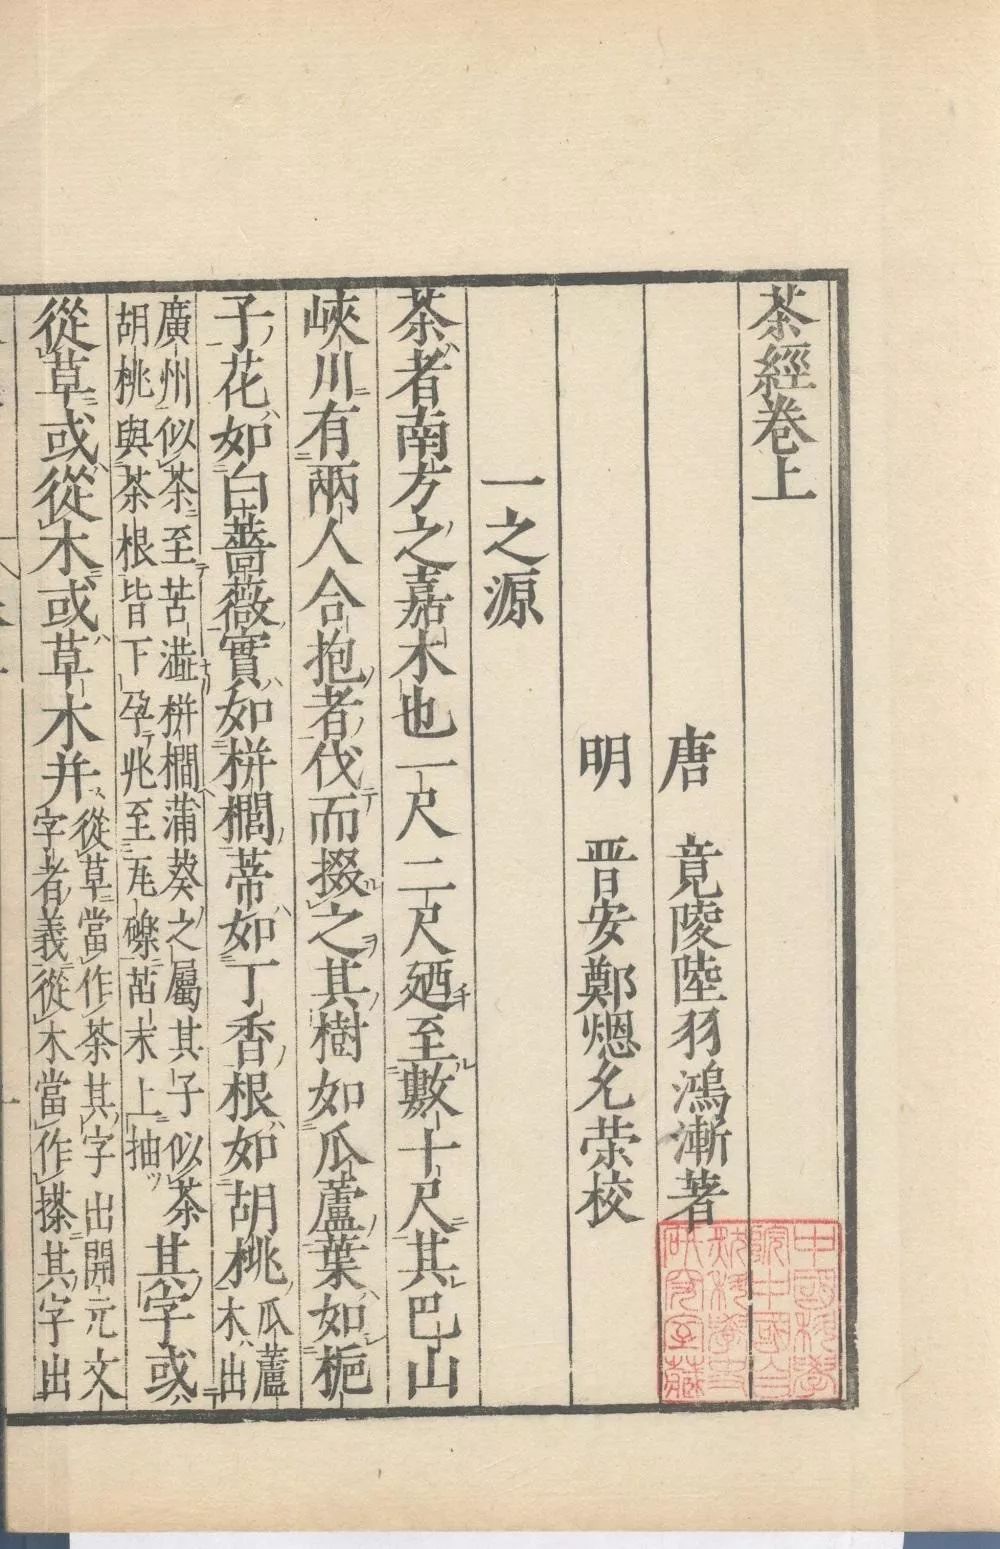 茶經卷上
唐　竟陵陸羽鴻漸著
明　晋安鄭熜允荣校
一之源
茶者南方之嘉木也一尺二尺廼至數十尺其巴山
峽川有兩人合抱者伐而掇之其樹如瓜蘆葉如梔
子花如白薔薇實如栟櫚蒂如丁香根如胡桃
瓜蘆
木出
廣州似茶至苦澁栟櫚蒲葵之屬其子似茶
胡桃與茶根皆下孕兆至瓦礫苗木上抽
其字或
從草或從木或草木并
從草當作茶其字出開元文
字者義從木當作搽其字出
中國科學
院中國自
然科學史
研究室藏